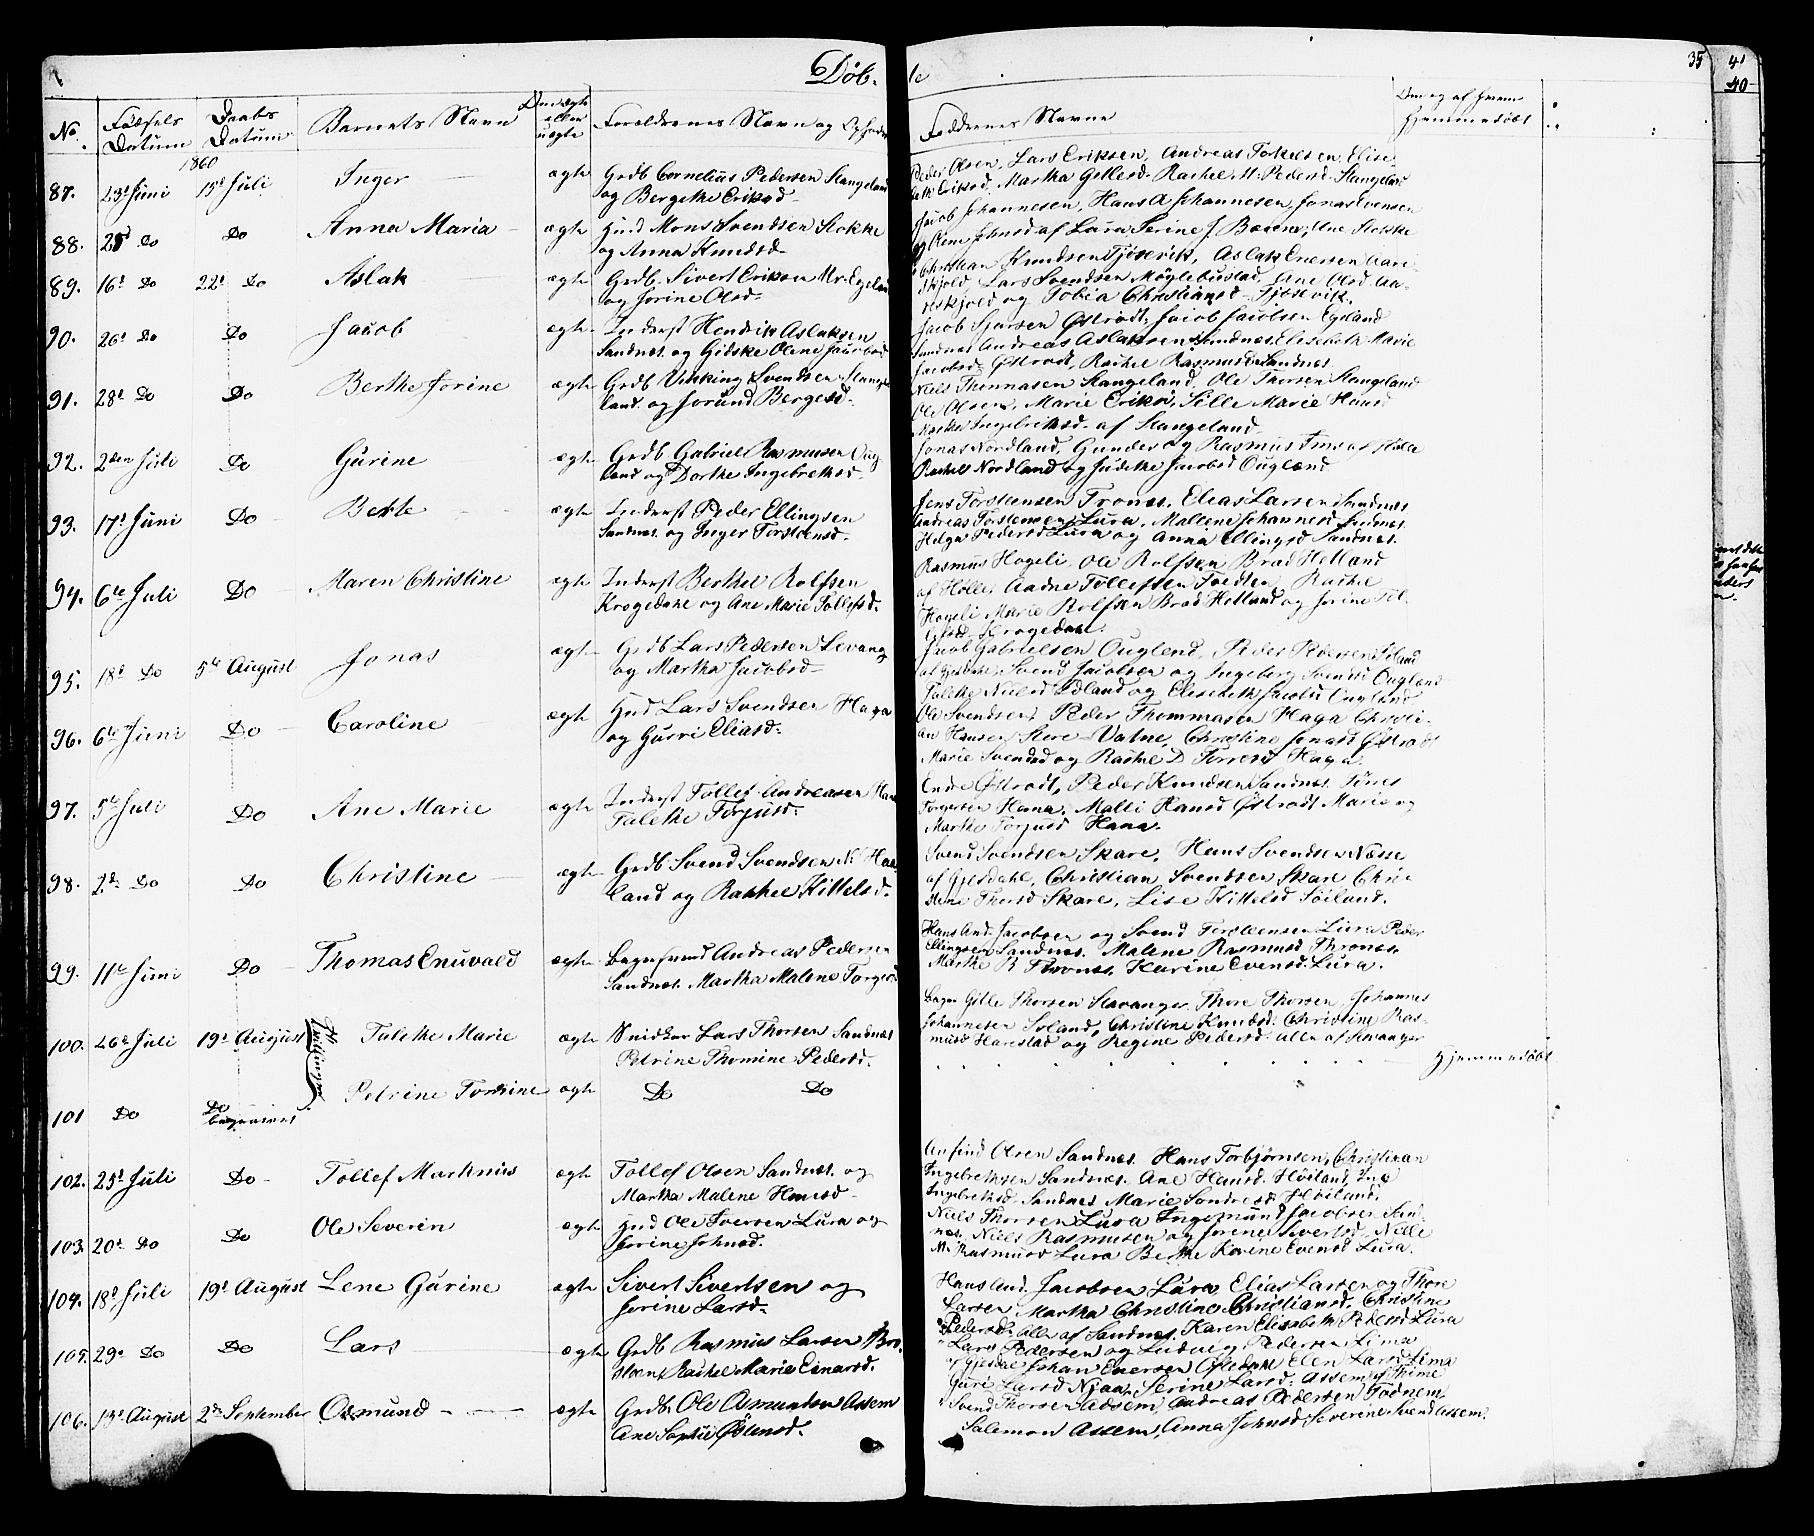 Døb-
te
35
41
40
No.
Fødsels Datum
Daabs Datum
Barnets Navn
Om ægte eller uægte
Forældrenes Navn og
Faddernes Navne
Om og af hvem hjemmedøbt
1860
87. 23d Juni 15d Juli Inger ægte Grdb Cornelius Pedersen Stangeland
og Bergethe Eriksd.
Peder Olsen, Lars Eriksen, Andreas Torkelsen, Elise-
beth Eriksd. Martha Gellesd. Rachel M. Pedersd. Stangeland
88. 25d Do Do Anna Maria ægte Huusmd Mons Svendsen Stokke
og Anna Knudsd.
Jacob Johannesen, Hans A Johannesen, Jonas Svensen
og Oline Johnsd af Lura Serine J. Bæreim, Ane Stokke
89. 16d Do 22d Do Aslak ægte Grdb. Sivert Erikson Nr. Egeland
og Jorine Olsd.
Christian Knudsen Tjøsevik, Aslak Enersen Aare-
skjold, Lars Svendsen Møglebustad, Ane Olsd Aa-
reskjold og Tobia Christiansd Tjøsevik.
90. 26d Do Do Jacob ægte Inderst Hendrik Aslaksen
Sandnæs. og Gidske Oline Jacobsd
Jacob Sjursen Østrodt, Jacob Jacobsen Egeland
Sandnæs Andreas Aslaksen Sandnæs Elisebeth Marie
Jacobsd. Østrodt, Rachel Rasmusd Sandnes.
91. 28d Do Do Berthe Jorine ægte Grdb Vikking Svendsen Stange-
land. og Jorund Bergesd.
Niels Thommasen Stangeland, Ole Thorsen Stangeland
Ole Olsen, Marie Eriksd, Sille Marie Hansd
Ingebrethsd. af Stangeland
92. 2den Juli Do Gurine ægte Grdb Gabriel Rasmusen Oug-
land og Dorthe Ingebrethsd.
Jonas Nordland, Gunder og Rasmus Tms af Hølle
Rachel Nordland og Judithe Jacobsd Ougland
93. 17d Juni Do Berthe ægte Inderst Peder Ellingsen
Sandnæs. og Inger Torstensd.
Jens Torstensen Tronæs. Elias Larsen Sandnæs
Andreas Torstensen Lura. Mallene Johannesd Sandnæs.
Helga Pedersd Lura og Anna Ellingsd Sandnæs.
94. 6te Juli Do Maren Christine ægte Inderst Berthel Rolfsen
Krogedahl og Ane Marie Tollefsd.
Rasmus Hogeli, Ole Rolfsen Brad Hetland
af Hølle, Aadne Tollefsen Foedsen, Rachel
Hogeli Marie Rolfsen Brad Hetland og Jorine Tol-
lefsd. Krogedahl.
95. 18d Do 5te August Jonas ægte Grdb Lars Pedersen Levang
og Martha Jacobsd
Jacob Gabrielsen Ouglend, Peder Pedersen Søland
af Gjesdal, Svend Jacobsen og Ingeborg Svendsd Ougland
Talethe Nielsd Odland og Elisebeth Jacobsd Ougland
96. 6te Juni Do Caroline ægte Hmd Lars Svendsen Haga
og Gurri Eliasd.
Ole Svendsen, Peder Thommasen Haga Christi-
an Hansen Store Vatne, Christine Jonasd Østrodt
Marie Svendsd og Rachel D Torresd Haga
97. 5te Juli Do Ane Marie ægte Inderst Tollef Andreasen Hana
Talethe Torjusd.
Endre Østrodt, Peder Knudsen Sandnæs. Tørres
Torgersen Hana, Malli Hansd Østrodt Marie og
Marthe Torjusd Hana.
98. 2de Do Do Christine ægte Grdb Svend Svendsen N. Haa-
land og Rachel Kittelsd.
Svend Svendsen Skare, Hans Svendsen Næsse
af Gjesdahl, Christian Svendsen Skare Chri-
stine Thorsd Skare, Lise Kittelsd Søiland.
99. 11te Juni Do Thomas Enuvald ægte Bagersvend Andreas Pedersen
Sandnæs. Martha Malene Torgersd
Hans And. Jacobsen og Svend Torstensen Lura Peder
Ellingsen Sandnæs. Malene Rasmusd Thronæs.
Marthe B Thronæs. Karine Evensd. Lura.
100. 26d Juli 19d August Tvillinger Talethe Marie ægte Snidker Lars Thorsen Sandnæs
Petrine Thomine Pedersd.
Bager Gille Thorsen Stavanger, Thore Thorsen, Johannes
Johannesen Soland, Christine Knudsd. Christine Ras-
musd Harestad og Regine Pedersd. alle af Stavanger
Hjemmedøbt
101 Do Do Petrine Tomine ægte Do Do
102. 25d Juli Do Tollef Marknus ægte Tollef Olsen Sandnæs. og
Martha Malene Hansd
Anfind Olsen Sandnæs. Hans Torbjørnsen, Christian
Ingebrethsen Sandnæs. Ane Hansd. Høiland, Ine
Ingebrethsd. Sandnæs Marie Sondresd Høiland.
103. 20d Do Do Ole Severin ægte Hmd Ole Iversen Lura og
Jorine Johnsd.
Niels Thorsen Lura Ingemund Jacobsen Sand-
næs. Niels Rasmusen og Jorene Sivertsd. Nille
M. Rasmusd Lura Berthe Karine Evensd Lura.
104. 18d Juli 19d August Lene Gurine ægte Sivert Sivertsen og
Jorine Larsd.
Hans And. Jacobsen Lura, Elias Larsen og Thore
Larsen, Martha Christine Christiansd. Christine
Pedersd. alle af Sandnæs. Karen Elisabeth Pedersd Lura
105. 29d Do Do Lars ægte Grdb Rasmus Larsen Bro-
steen, Rachel Marie Einarsd.
Lars Pedersen og Ludvig Pedersen Lima
af Gjesdal Johan Enersen Ofstdahl Elen Larsd Lima
Guri Larsd Njaa, Serine Larsd. Assem af Thime
106. 13d August 2de September Osmund ægte Grdb. Ole Asmundsen Assem
Ane Sophie Østensd.
Svend Thorsen Assem, Andreas Pedersen Fodnem
Salemon Assem, Anna Johnsd Severine Svendsd Assem.